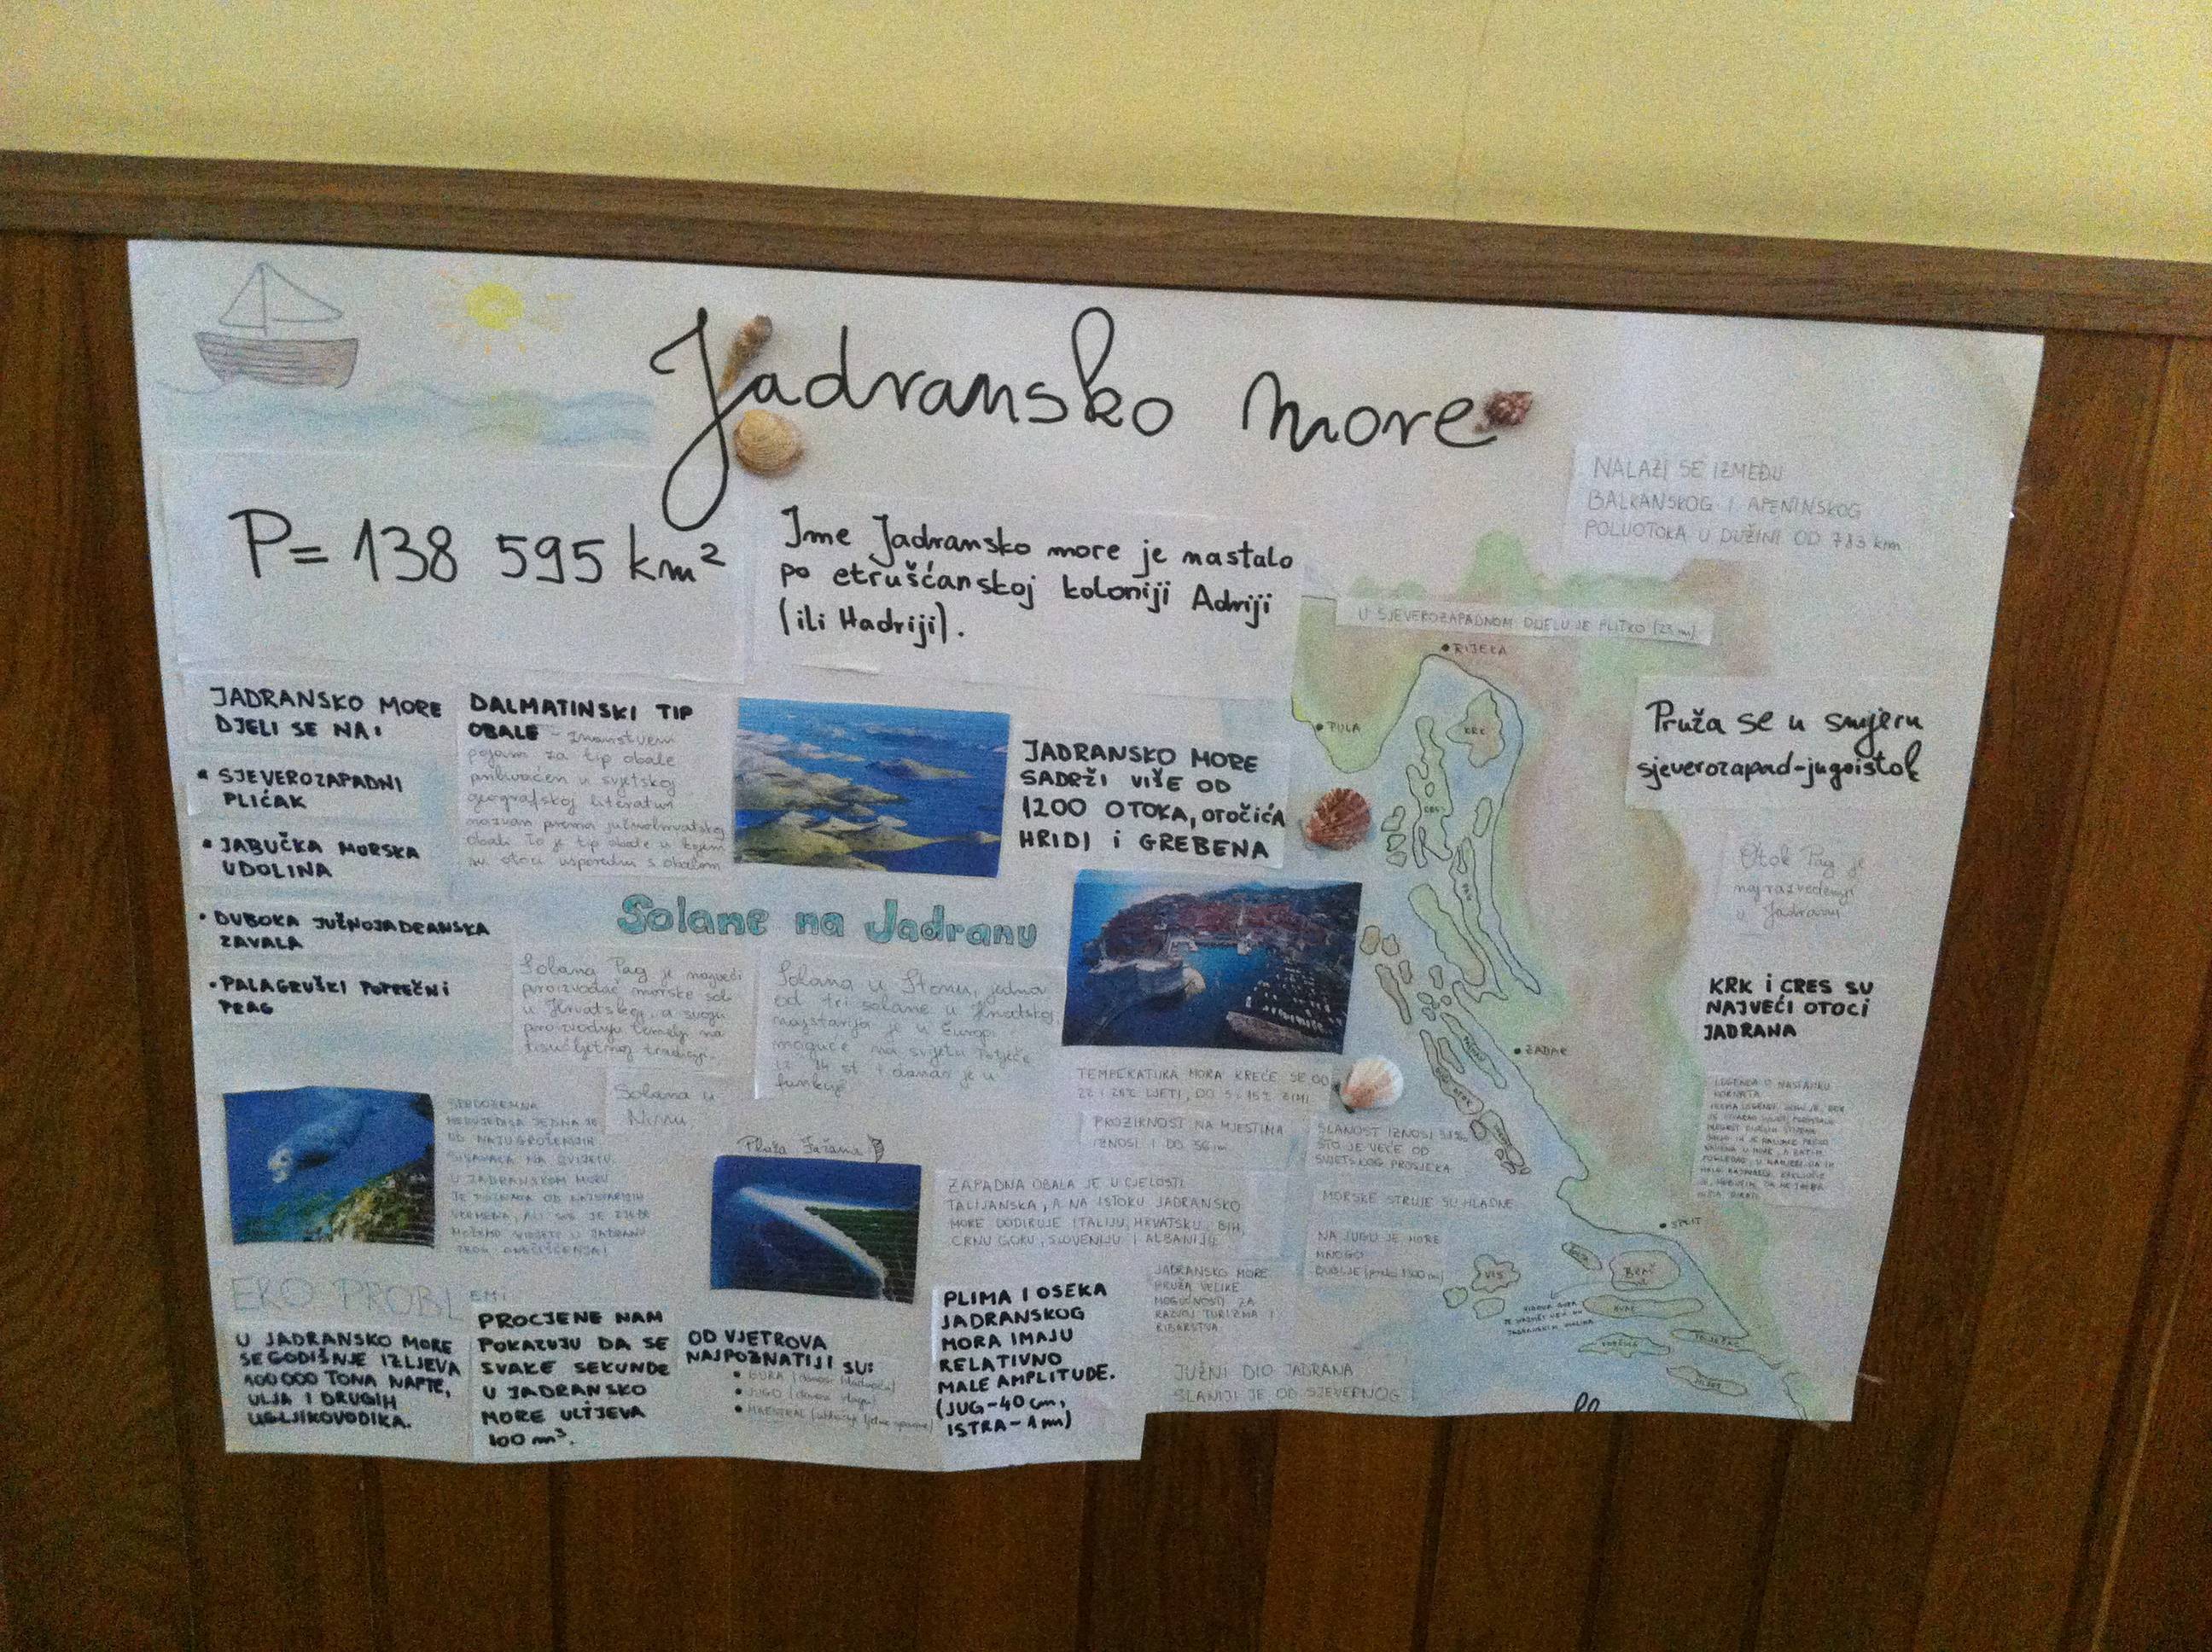 Jadransko more
P= 138 595 km²
Ime Jadransko more je nastalo
po etrušćanskoj koloniji Adriji
(ili Hadriji).
NALAZI SE IZMEĐU
BALKANSKOG I APENINSKOG
POLUOTOKA U DUŽINI OD 783 km
U SJEVEROZAPADNOM DIJELU JE PLITKO (23 m)
RIJEKA
PULA
KRK
CRES
PAG
Pruža se u smjeru
sjeverozapad-jugoistok
JADRANSKO MORE
DJELI SE NA:
• SJEVEROZAPADNI
PLIĆAK
• JABUČKA MORSKA
UDOLINA
• DUBOKA JUŽNOJADRANSKA
ZAVALA
• PALAGRUŠKI POPREČNI
PRAG
DALMATINSKI TIP
OBALE - znanstveni
pojam za tip obale
prihvaćen u svjetskoj
geografskoj literaturi
nazvan prema južnohrvatskoj
obali. To je tip obale u kojem
su otoci usporedni s obalom
JADRANSKO MORE
SADRŽI VIŠE OD
1200 OTOKA, OTOČIĆA
HRIDI i GREBENA
Otok Pag je
najrazvedeniji
u Jadranu
KRK i CRES SU
NAJVEĆI OTOCI
JADRANA
Solane na Jadranu
Solana Pag je najveći
proizvođač morske soli
u Hrvatskoj, a svoju
proizvodnju temelji na
tisućljetnoj tradiciji.
Solana u Stonu, jedna
od tri solane u Hrvatskoj
najstarija je u Europi
moguće na svijetu. Potječe
iz 14 st. i danas je u
funkciji.
Solana u
Ninu
ZADAR
SPLIT
VIS
BRAČ
HVAR
TEMPERATURA MORA KREĆE SE OD
22 I 26°C LJETI, DO 5 - 15°C ZIMI
PROZIRNOST NA MJESTIMA
IZNOSI I DO 56 m
SLANOST IZNOSI
ŠTO JE VEĆE OD
SVJETSKOG PROSJEKA
MORSKE STRUJE SU HLADNE
NA JUGU JE MORE
MNOGO
DUBLJE
SREDOZEMNA
MEDVJEDICA JEDNA JE
OD NAJUGROŽENIJIH
SISAVACA NA SVIJETU.
U JADRANSKOM MORU
JE POZNATA OD NAJSTARIJIH
VREMENA, ALI
MOŽEMO VIDJETI U JADRANU
ZBOG ONEČIŠĆENJA!
Plaža
ZAPADNA OBALA JE U CJELOSTI
TALIJANSKA, A NA ISTOKU JADRANSKO
MORE DODIRUJE ITALIJU, HRVATSKU, BIH,
CRNU GORU, SLOVENIJU I ALBANIJU.
JADRANSKO MORE
PRUŽA VELIKE
MOGUĆNOSTI ZA
RAZVOJ TURIZMA I
RIBARSTVA
JUŽNI DIO JADRANA
SLANIJI JE OD SJEVERNOG
EKO PROBLEMI
U JADRANSKO MORE
SE GODIŠNJE IZLJEVA
100 000 TONA NAFTE,
ULJA I DRUGIH
UGLJIKOVODIKA.
PROCJENE NAM
POKAZUJU DA SE
SVAKE SEKUNDE
U JADRANSKO
MORE ULIJEVA
100 m³.
OD VJETROVA
NAJPOZNATIJI SU:
• BURA
• JUGO
• MAESTRAL
PLIMA I OSEKA
JADRANSKOG
MORA IMAJU
RELATIVNO
MALE AMPLITUDE.
(JUG-40 cm,
ISTRA-1 m)